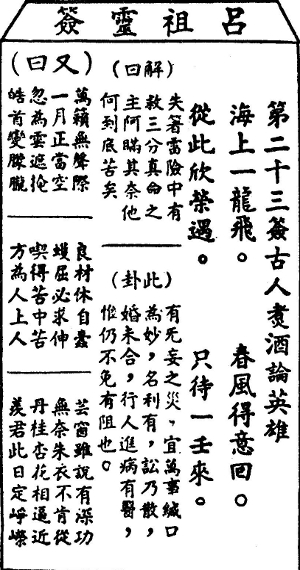 呂祖靈簽
第二十三簽古人煑酒論英雄
海上一龍飛。 春風得意回。
從此欣榮遇。 只待一壬來。
(解曰)
失箸雷險中有
救三分真命之
主阿瞞其奈他
何到底苦矣
(此卦)
有旡妄之災，宜萬事緘口
為妙，名利有，訟乃散，
婚未合，行人進病有醫，
惟仍不免有阻也。
(又曰)
萬籟無聲際
一月正當空
忽為雲遮掩
皓首變朦朧
良材休自蠹
蠖屈必求伸
喫得苦中苦
方為人上人
芸窗雖說有深功
無奈朱衣不肯從
丹桂杏花相逼近
羨君此日定崢嶸